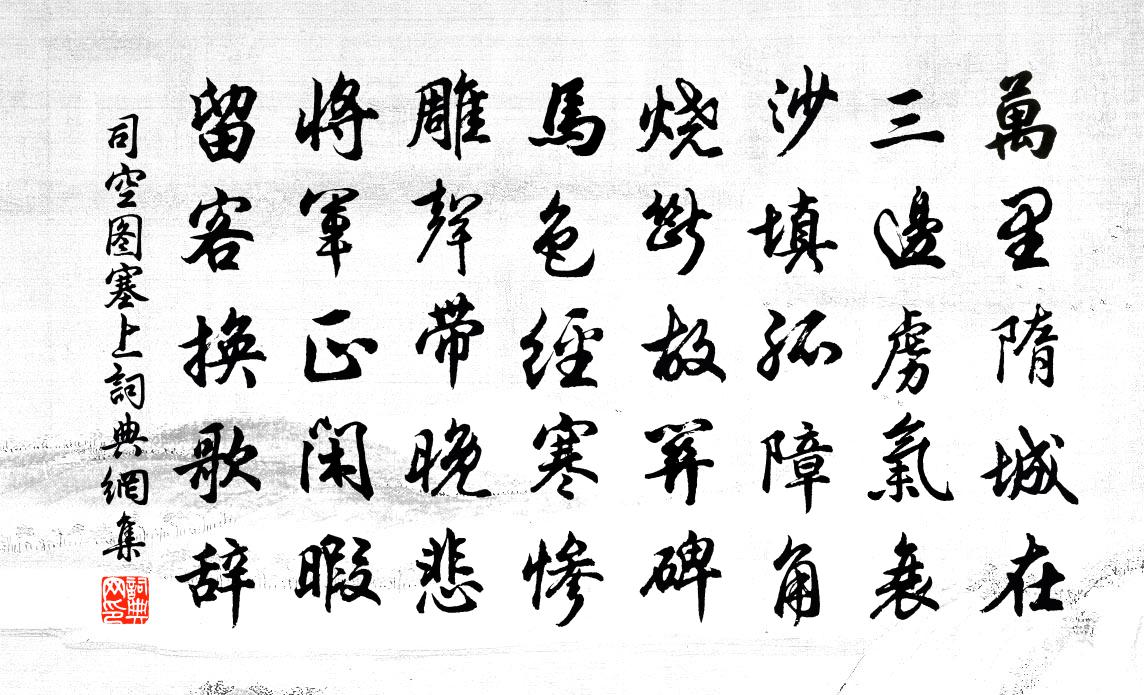 萬里隋城在
三邊虜氣衰
沙填孤障角
燒斷故關碑
馬色經寒慘
雕聲帶晚悲
將軍正閑暇
留客換歌辞
司空图塞上詞典網集
詞典网印